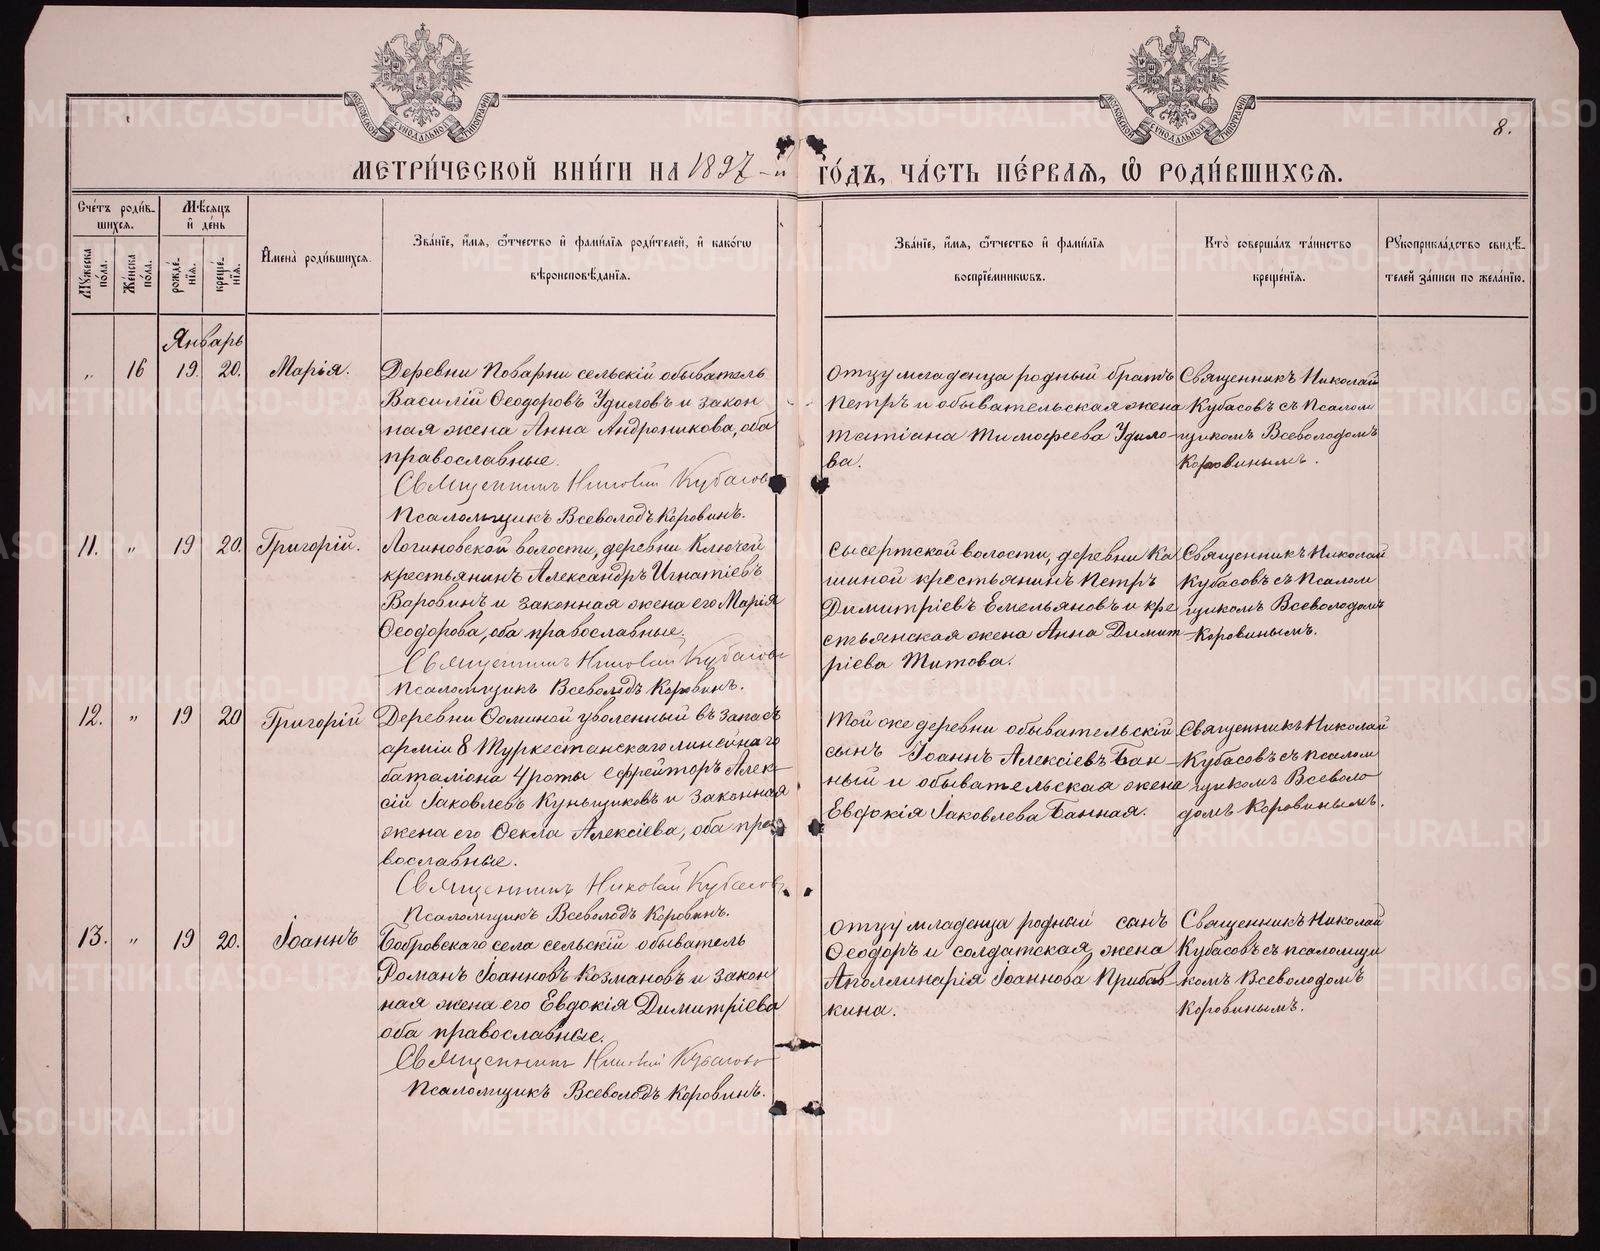 МОСКОВСКОЙ СУНОДАЛЬНОЙ ТИПОГРАФІИ
МОСКОВСКОЙ СУНОДАЛЬНОЙ ТИПОГРАФІИ
8.
МЕТРИ́ЧЕСКОЙ КНИ́ГИ НА 1897-й ГО́ДЪ, ЧА́СТЬ ПЕ́РВАѦ, Ѡ҆ РОДИ́ВШИХСѦ.
Сче́тъ роди́в-
шихсѧ.
Мꙋ́жеска
пола.
Же́нска
по́ла.
Мѣ́сѧцъ
и҆ де́нь
рожде́-
нїѧ.
креще́-
нїѧ.
И҆мена̀ роди́вшихсѧ.
Зва́нїе, и҆́мѧ, ѻ҆́тчество и҆ фами́лїѧ роди́телей, и҆ како́гѡ
вѣроисповѣ́данїѧ.
Зва́нїе, и҆́мѧ, ѻ҆́тчество и҆ фами́лїѧ
воспрїе́мникѡвъ.
Кто̀ соверша́лъ та́инство
креще́нїѧ.
Рꙋкоприкла́дство свидѣ́-
телей за́писи по жела́нїю.
Январь
" 16 19 20. Марія.
Деревни Поварни сельскій обыватель
Василій Ѳеодоровъ Удиловъ и закон
ная жена Анна Андроникова, оба
православные.
Священникъ Николай Кубасовъ
Псаломщикъ Всеволодъ Коровинъ.
Отцу младенца родный братъ
Петръ и обывательская жена
Татіана Тимофеева Удило-
ва.
Священникъ Николай
Кубасовъ съ Псалом
щикомъ Всеволодомъ
Коровинымъ.
11. " 19 20. Григорій.
Логиновской волости, деревни Ключей
крестьянинъ Александръ Игнатіевъ
Варовинъ и законная жена его Марія
Ѳеодорова, оба православные.
Священникъ Николай Кубасовъ
Псаломщикъ Всеволодъ Коровинъ.
Сысертской волости, деревни Ка
шиной крестьянинъ Петръ
Димитріевъ Емельяновъ и кре
стьянская жена Анна Димит-
ріева Титова.
Священникъ Николай
Кубасовъ съ Псалом
щикомъ Всеволодомъ
Коровинымъ.
12. " 19 20 Григорій
Деревни Ѳоминой уволенный въ запасъ
арміи 8 Туркестанскаго линейнаго
баталіона 4 роты ефрейторъ Алек-
сій Іаковлевъ Куньщиковъ и законная
жена его Ѳекла Алексіева, оба пра
вославные.
Священникъ Николай Кубасовъ
Псаломщикъ Всеволодъ Коровинъ.
Той же деревни обывательскій
сынъ Іоаннъ Алексіевъ Бан-
ный и обывательская жена
Евдокія Іаковлева Банная.
Священникъ Николай
Кубасовъ съ псалом
щикомъ Всеволо
домъ Коровинымъ.
13. " 19 20. Іоаннъ
Бобровскаго села сельскій обыватель
Романъ Іоанновъ Козмановъ и закон
ная жена его Евдокія Димитріева
оба православные.
Священникъ Николай Кубасовъ
Псаломщикъ Всеволодъ Коровинъ.
Отцу младенца родный сынъ
Ѳеодоръ и солдатская жена
Аполлинарія Іоаннова Прибав-
кина.
Священникъ Николай
Кубасовъ съ псаломщи
комъ Всеволодомъ
Коровинымъ.
METRIKI.GASO-URAL.RU